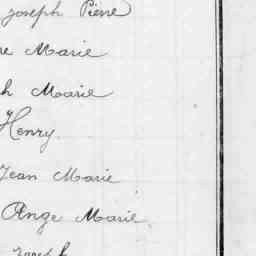 Joseph Pierre
re Marie
h Marie
Henry
Jean Marie
Ange Marie
Joseph